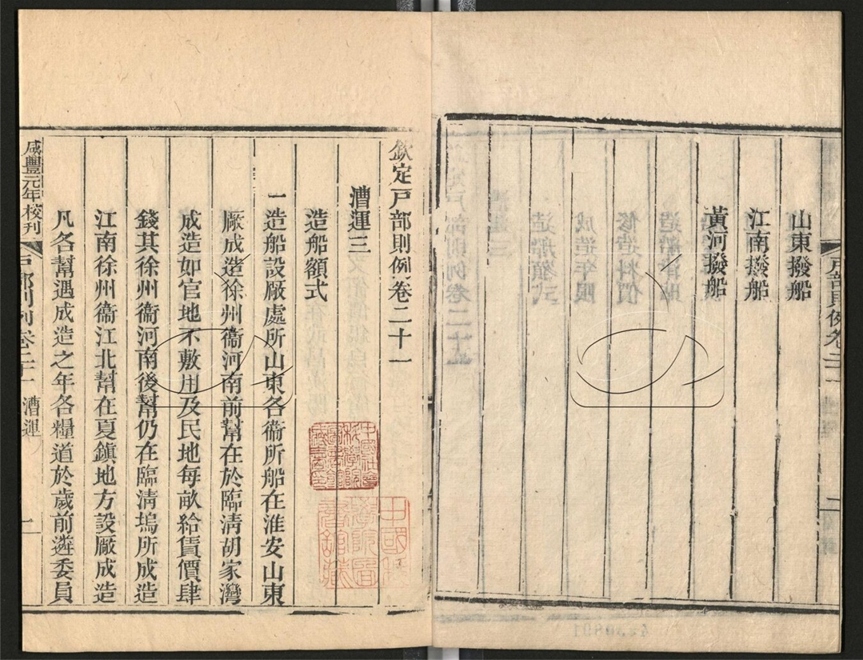 山東撥船
江南撥船
黃河撥船
欽定戸部則例卷二十一
漕運三
造船額式
一造船設厰處所山東各衞所船在淮安山東
厰成造徐州衞河南前幫在於臨淸胡家灣
成造如官地不敷用及民地每畝給賃價肆
錢其徐州衞河南後幫仍在臨淸塢所成造
江南徐州衞江北幫在夏鎮地方設厰成造
凡各幫遇成造之年各糧道於歲前遴委員
咸豐元年校刋
戸部則例卷二十一
漕運
一